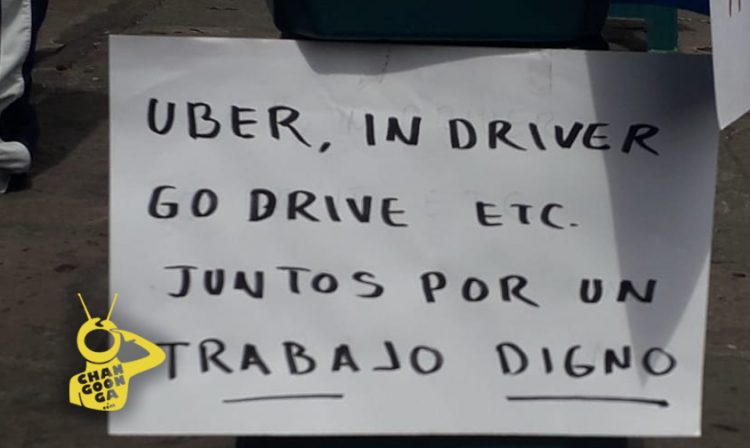 UBER, IN DRIVER
GO DRIVE ETC.
JUNTOS POR UN
TRABAJO DIGNO
CHAN
GOON
GA
.com